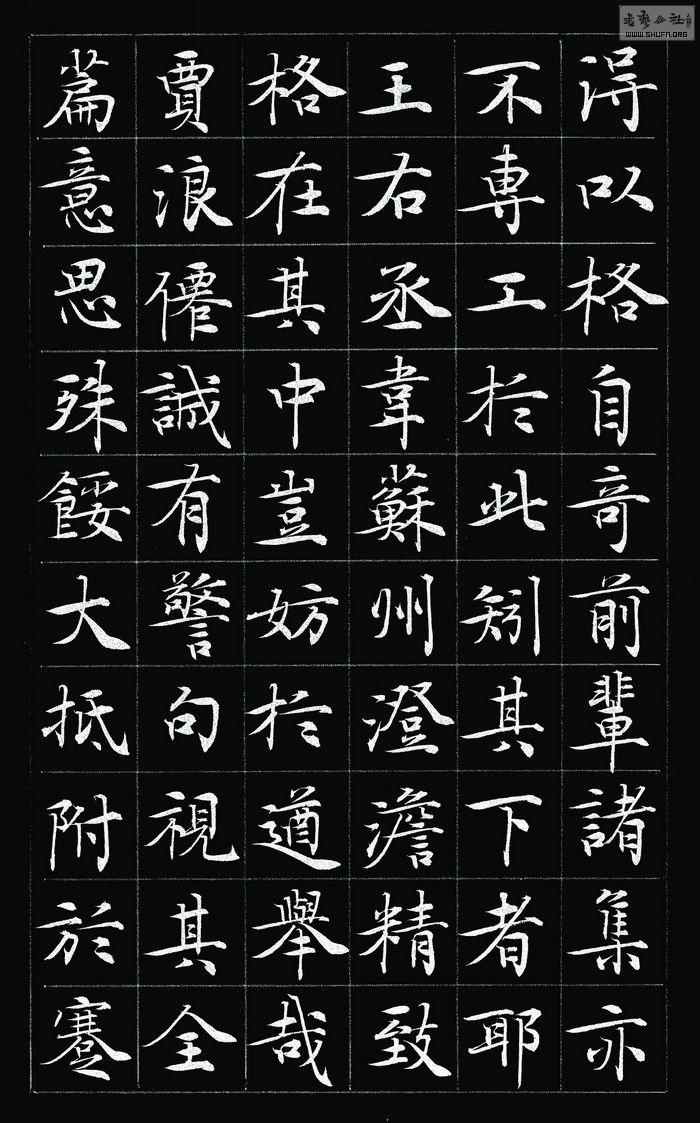 得以格自奇前輩諸集亦
不專工於此矧其下者耶
王右丞韋蘇州澄澹精致
格在其中豈妨於遒舉哉
賈浪僊誠有警句視其全
篇意思殊餒大抵附於蹇
書藝公社
WWW.SHUFA.ORG